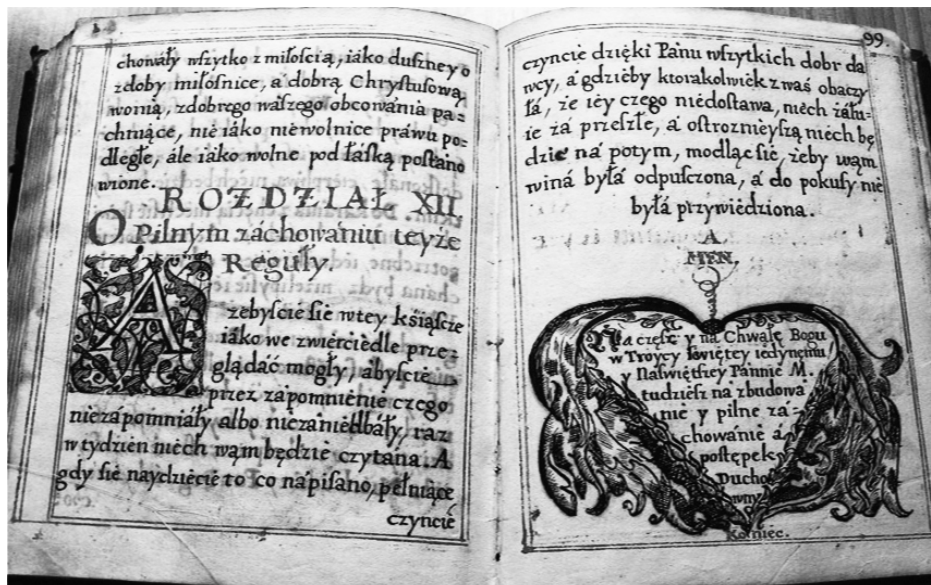 chowáły wszytko z miłością, iáko duszney o
zdoby miłośnice, a dobrą Chrystusową
wonią, zdobrego wászego obcowánia pa=
chniące, nie iáko niewolnice práwu po=
dległe, ále iáko wolne pod łáską postáno
wione.
ROZDZIAŁ XII
O Pilnym zachowaniu teyże
Reguły.
Ażebyscie sie wtey książce
iáko we zwierciedle prze=
glądáć mogły, ábyscie
przez zápomnienie czego
niezápomniáły álbo niezániedbáły, raz
w tydzien niech wąm będzie czytana. A
gdy sie naydziecie to co nápisano, pełniące
czyncie
99.
czyncie dzięki Pánu wszytkich dobr da
wcy, á gdzieby ktorakolwiek z wás obaczy
łá, że iey czego niedostawa, niech záłu=
ie zá przeszłe, á ostroznieyszą niech bę
dzie ná potym, modląc sie, żeby wąm
winá byłá odpusczona, á do pokusy nie
byłá przywiedziona.
A
MEN.
Na cześć y na Chwałę Bogu
w Troycy świętey iedynemu
y Naświętszey Pannie M.
tudziesz na zbudowa
nie y pilne zá=
chowánie á
postępek
Ducho
wny
Koniec.